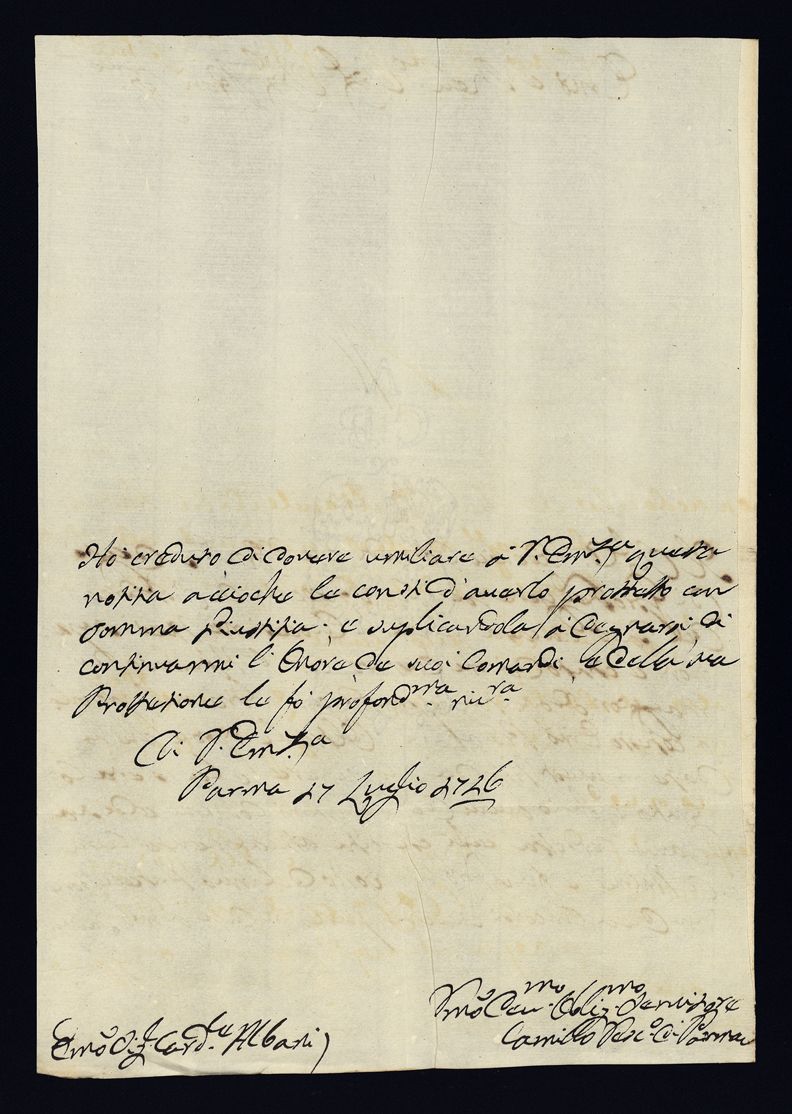 Ho' creduto di dovere umiliare à V. Em.za questa
notitia acciochè le consti d'auerlo protetto con
somma Giustitia: e suplicandola à degnarsi di
continuarmi l'onore de suoi Comandi, e della sua
Prottetione le fò profond.ma riu.ra
Di V. Em.za
Parma 17 Luglio 1726
Vmo Deu.mo Obliz.mo Seruitore
Camillo Vesc.o di Parma
Emo Sig.r Card.le Albani